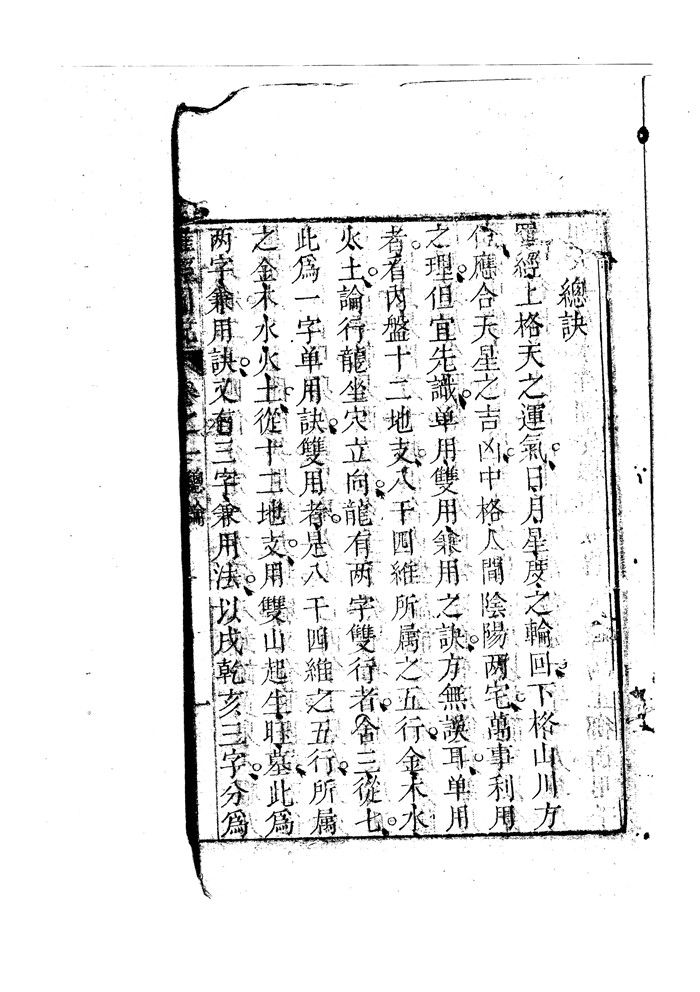 總訣
羅經上格天之運氣日月星度之輪回下格山川方
位應合天星之吉凶中格人間陰陽两宅萬事利用
之理但宜先識单用雙用兼用之訣方無誤耳单用
者看内盤十二地支八干四維所属之五行金木水
火土論行龍坐穴立向龍有两字雙行者舍三從七
此為一字单用訣雙用者是八干四維之五行所属
之金木水火土從十二地支用雙山起生旺墓此為
两字兼用訣又有三字兼用法以戌乾亥三字分為
羅經圖說 卷之一 總論